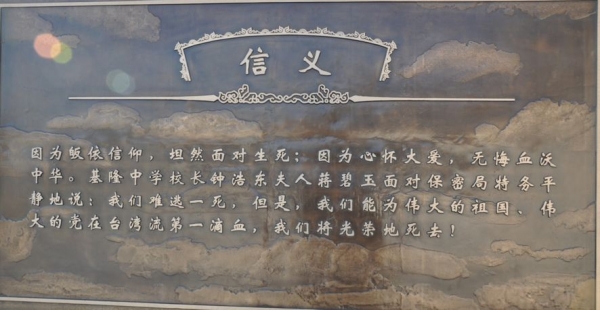 信义
因为皈依信仰，坦然面对生死；因为心怀大爱，无悔血沃
中华。基隆中学校长钟浩东夫人蒋碧玉面对保密局特务平
静地说：我们难逃一死，但是，我们能为伟大的祖国、伟
大的党在台湾流第一滴血，我们将光荣地死去！